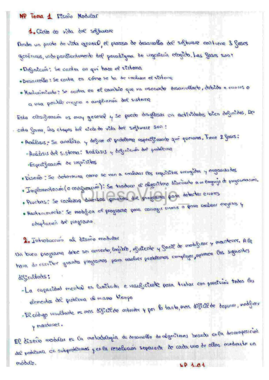 MP Tema 1. Diseño Modular
1. Ciclo de vida del software
Desde un punto de vista general, el proceso de desarrollo del software contiene 3 fases
genéricas, independientemente del paradigma de ingeniería elegido. Las fases son:
• Definición: Se centra en qué hace el sistema
• Desarrollo: Se centra en cómo se ha de realizar el sistema
• Mantenimiento: Se centra en el cambio que es necesario desarrollarle, debido a errores o
a una posible mejora o ampliación del sistema
Esta clasificación es muy general y se puede desglosar en actividades bien definidas. De
esta forma, las etapas del ciclo de vida del software son:
• Análisis: Se analiza y define el problema especificando qué queremos. Tiene 2 fases:
- Análisis del sistema: Análisis y definición del problema
- Especificación de requisitos
• Diseño: Se determina como se van a realizar los requisitos exigidos y asegurados
• Implementación (o codificación): Se traduce el algoritmo diseñado a un lenguaje de programación
• Pruebas: Se realizan programas detectar errores
• Mantenimiento: Se modifica el programa para corregir errores o para realizar mejoras y
ampliación del programa
WUOLAH
2. Introducción al diseño modular
Un buen programa debe ser correcto, legible, eficiente y fácil de modificar y mantener. A la
hora de escribir grandes programas para resolver problemas complejos, aparecen las siguientes
dificultades:
- La capacidad mental es limitada e insuficiente para tratar con precisión todos los
elementos del problema al mismo tiempo
- El código resultante es más difícil de entender y por lo tanto, más difícil de depurar, modificar
y mantener.
El diseño modular es la metodología de desarrollo de algoritmos basada en la descomposición
del problema en subproblemas y en la resolución separada de cada uno de ellos mediante un
módulo.